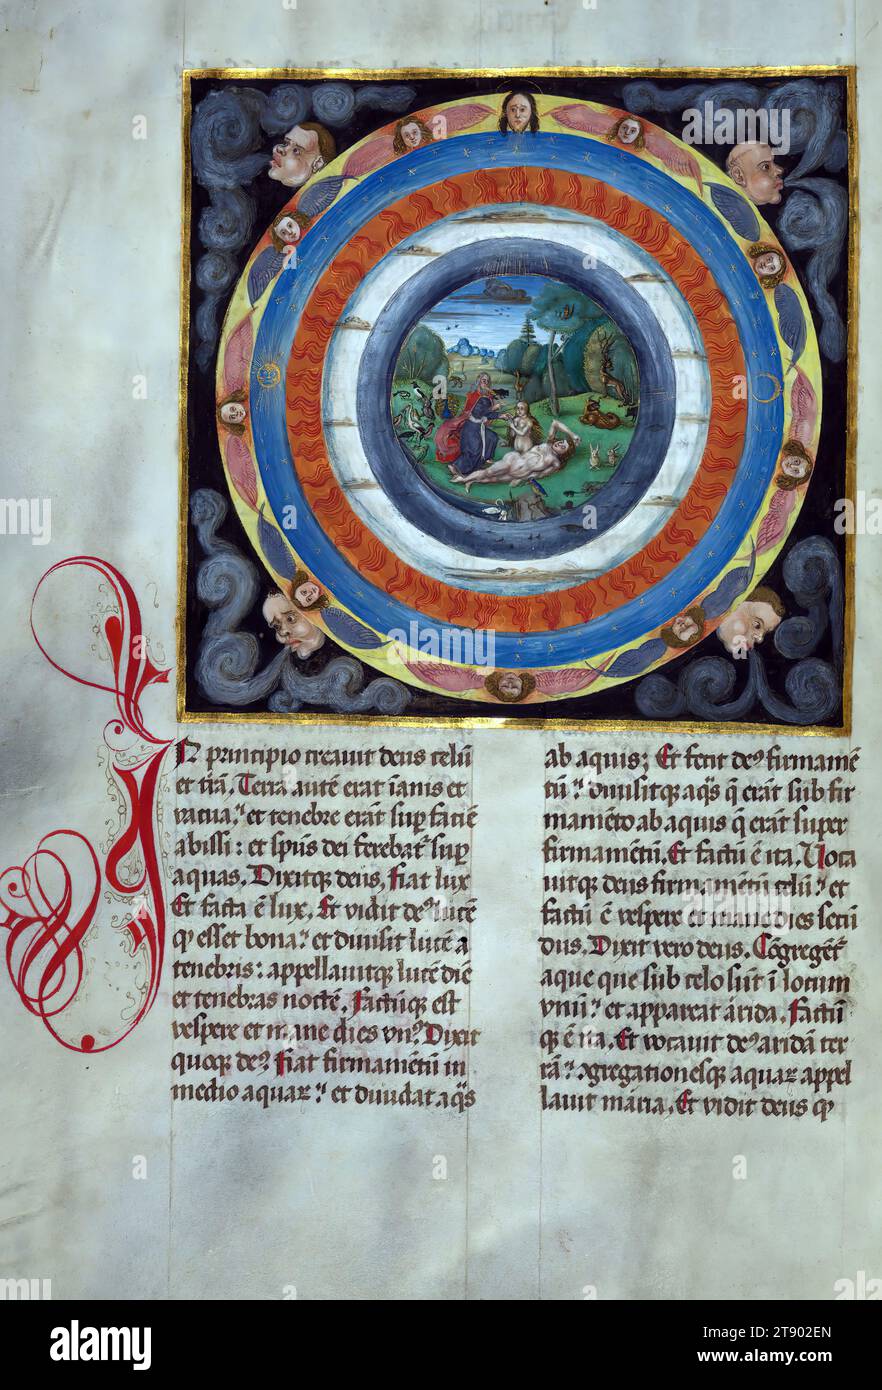 IN principio creauit deus celū
et trā. Terra autē erat īanis et
vacua: et tenebre erāt suꝑ faciē
abissi: et spūs dei ferebat᷑ suꝑ
aquas. Dixitqꝫ deus, Fiat lux
Et facta ē lux, Et vidit deꝰ lucē
ꝙ esset bona: et diuisit lucē a
tenebris: appellauitqꝫ lucē diē
et tenebras noctē. Factūqꝫ est
vespere et mane dies vnꝰ Dixit
quoqꝫ deꝰ Fiat firmamētū in
medio aquaꝝ: et diuidat aq̄s
ab aquis; Et fecit deꝰ firmamē
tū: diuisitqꝫ aq̄s q̄ erāt sub fir
mamēto ab aquis q̄ erāt super
firmamētū. Et factū ē ita. Voca
uitqꝫ deus firmamētū celū: et
factū ē vespere et mane dies secū
dus. Dixit vero deus. Cōgregēt᷑
aque que sub celo sūt ī locum
vnū: et appareat arida. Factū
qꝫ ē ita. Et vocauit deꝰ aridā ter
rā: ꝯgregationesqꝫ aquaꝝ appel
lauit maria. Et vidit deus ꝙ
alamy
Image ID: 2T902EN
www.alamy.com